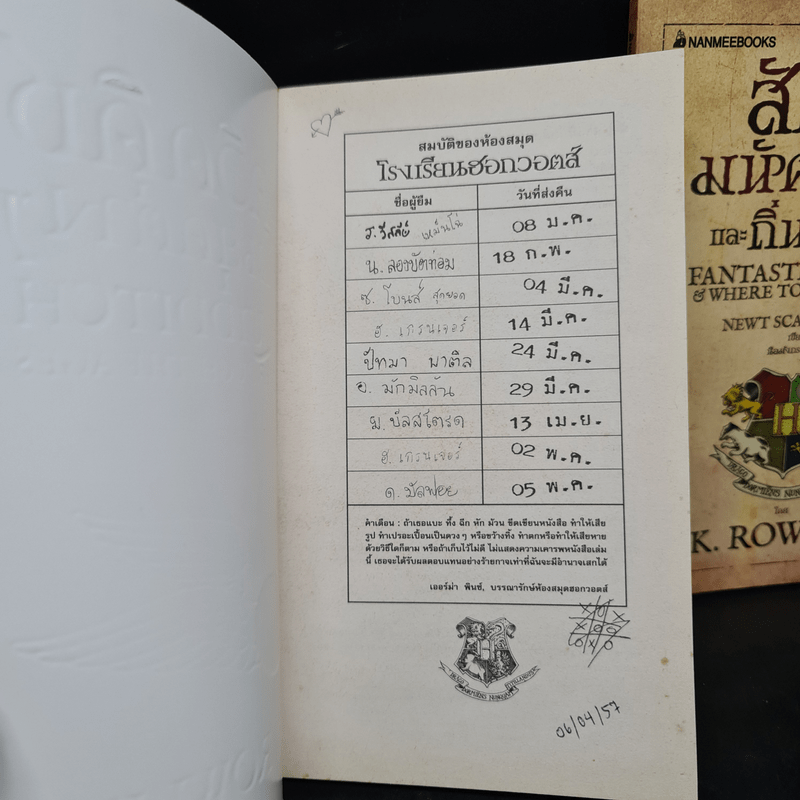 สมบัติของห้องสมุด
โรงเรียนฮอกวอตส์
ชื่อผู้ยืม วันที่ส่งคืน
ร.วีสลีย์ เหม็นโฉ่ 08 ม.ค.
น.ลองบัตท่อม 18 ก.พ.
ซ.โบนส์ สุดยอด 04 มี.ค.
ฮ.เกรนเจอร์ 14 มี.ค.
ปัทมา พาติล 24 มี.ค.
อ.มักมิลลัน 29 มี.ค.
ม.บัลสโตรด 13 เม.ย.
ฮ.เกรนเจอร์ 02 พ.ค.
ด.มัลฟอย 05 พ.ค.
คำเตือน : ถ้าเธอแบะ ทึ้ง ฉีก หัก ม้วน ขีดเขียนหนังสือ ทำให้เสีย
รูป ทำเปรอะเปื้อนเป็นดวงๆ หรือขว้างทิ้ง ทำตกหรือทำให้เสียหาย
ด้วยวิธีใดก็ตาม หรือถ้าเก็บไว้ไม่ดี ไม่แสดงความเคารพหนังสือเล่ม
นี้ เธอจะได้รับผลตอบแทนอย่างร้ายกาจเท่าที่ฉันจะมีอำนาจเสกได้
เออร์ม่า พินซ์, บรรณารักษ์ห้องสมุดฮอกวอตส์
06/04/57
NANMEEBOOKS
และถิ่น
FANTAST
& WHERE TO
NEWT SCA
โดย
K. ROW